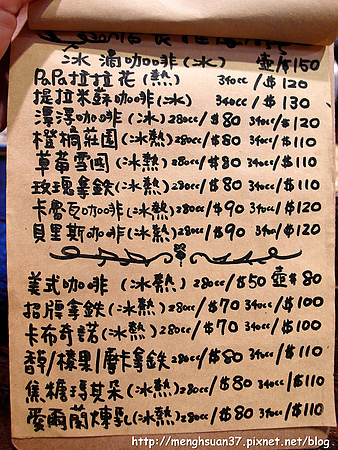 冰滴咖啡(冰) 壺/$150
PaPa拉拉花(熱) 340cc/$120
提拉米蘇咖啡(冰) 340cc/$130
漂浮咖啡(冰)280cc/$80 340cc/$120
橙橘莊園(冰熱)280cc/$80 340cc/$110
草莓雪國(冰熱)280cc/$80 340cc/$110
玫瑰拿鉄(冰熱)280cc/$80 340cc/$110
卡魯瓦咖啡(冰熱)280cc/$90 340cc/$120
貝里斯咖啡(冰熱)280cc/$90 340cc/$120
美式咖啡(冰熱)280cc/$50 壺$80
招牌拿鉄(冰熱)280cc/$70 340cc/$100
卡布奇諾(冰熱)280cc/$70 340cc/$100
榛果/摩卡拿鉄(冰熱)280cc/$80 340cc/$110
焦糖瑪其朵(冰熱)280cc/$80 340cc/$110
愛爾蘭煉乳(冰熱)280cc/$80 340cc/$110
http://menghsuan37.pixnet.net/blog